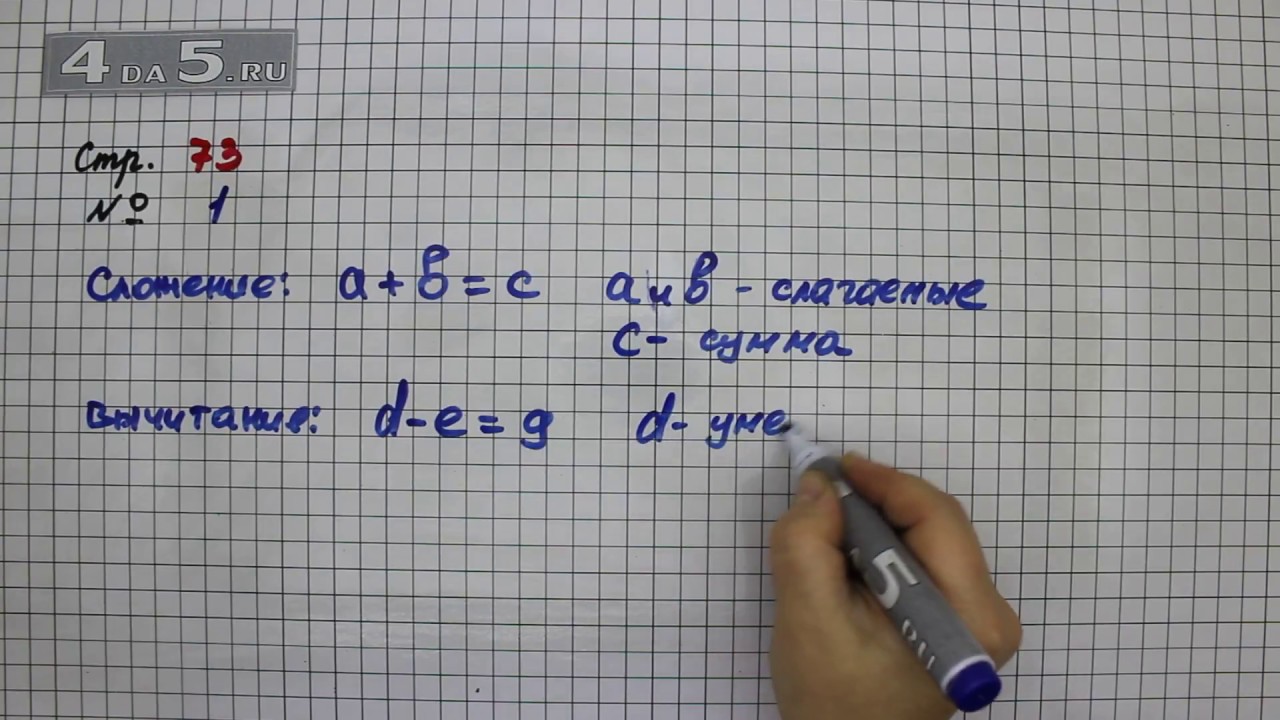 4DA5.RU
Стр. 73
№ 1
Сложение: a + b = c a и b - слагаемые
c - сумма
Вычитание: d - e = g d - уме
5
.RU